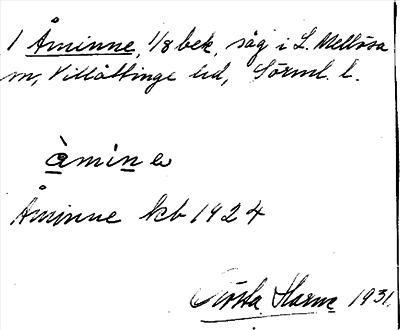 1 Åminne, 1/8 bek, säg i L. Mellösa
sn, Villåttinge hd, Sörml. l.
àmìnə
Åminne kb 1924
Gösta Harne 1931.